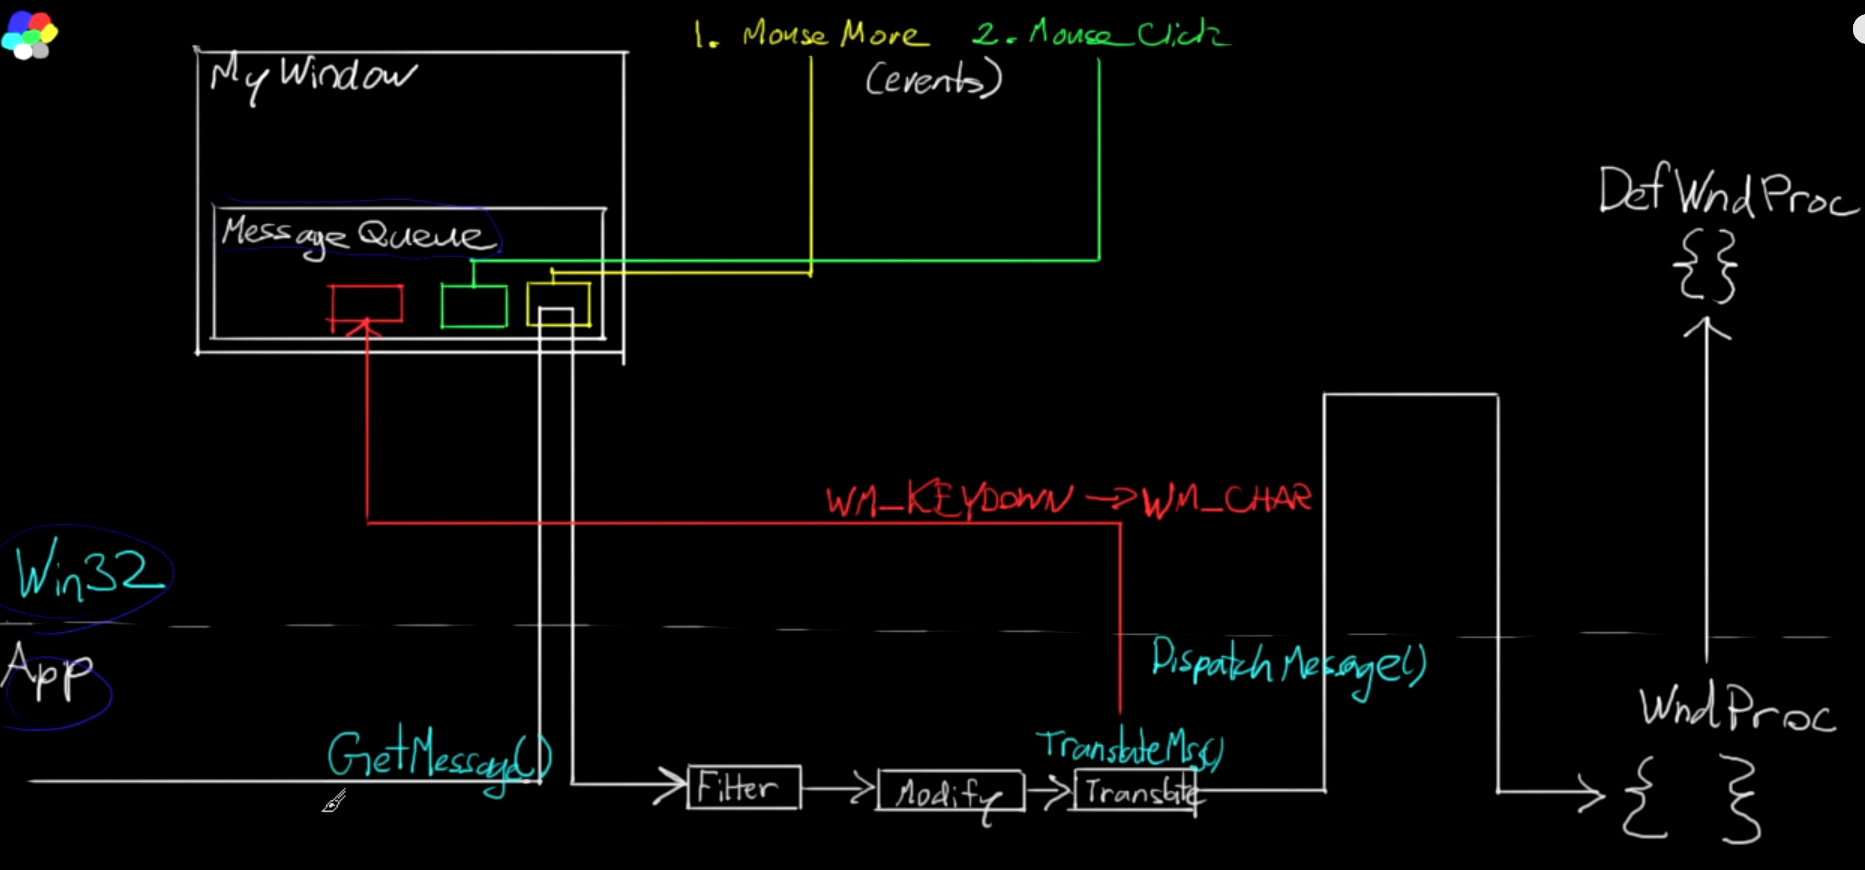 1. Mouse More 2. Mouse Click
(events)
My Window
Message Queue
DefWndProc
{ }
WM_KEYDOWN → WM_CHAR
Win32
App
DispatchMessage()
WndProc
{ }
GetMessage()
TranslateMsg()
Filter
Modify
Translate